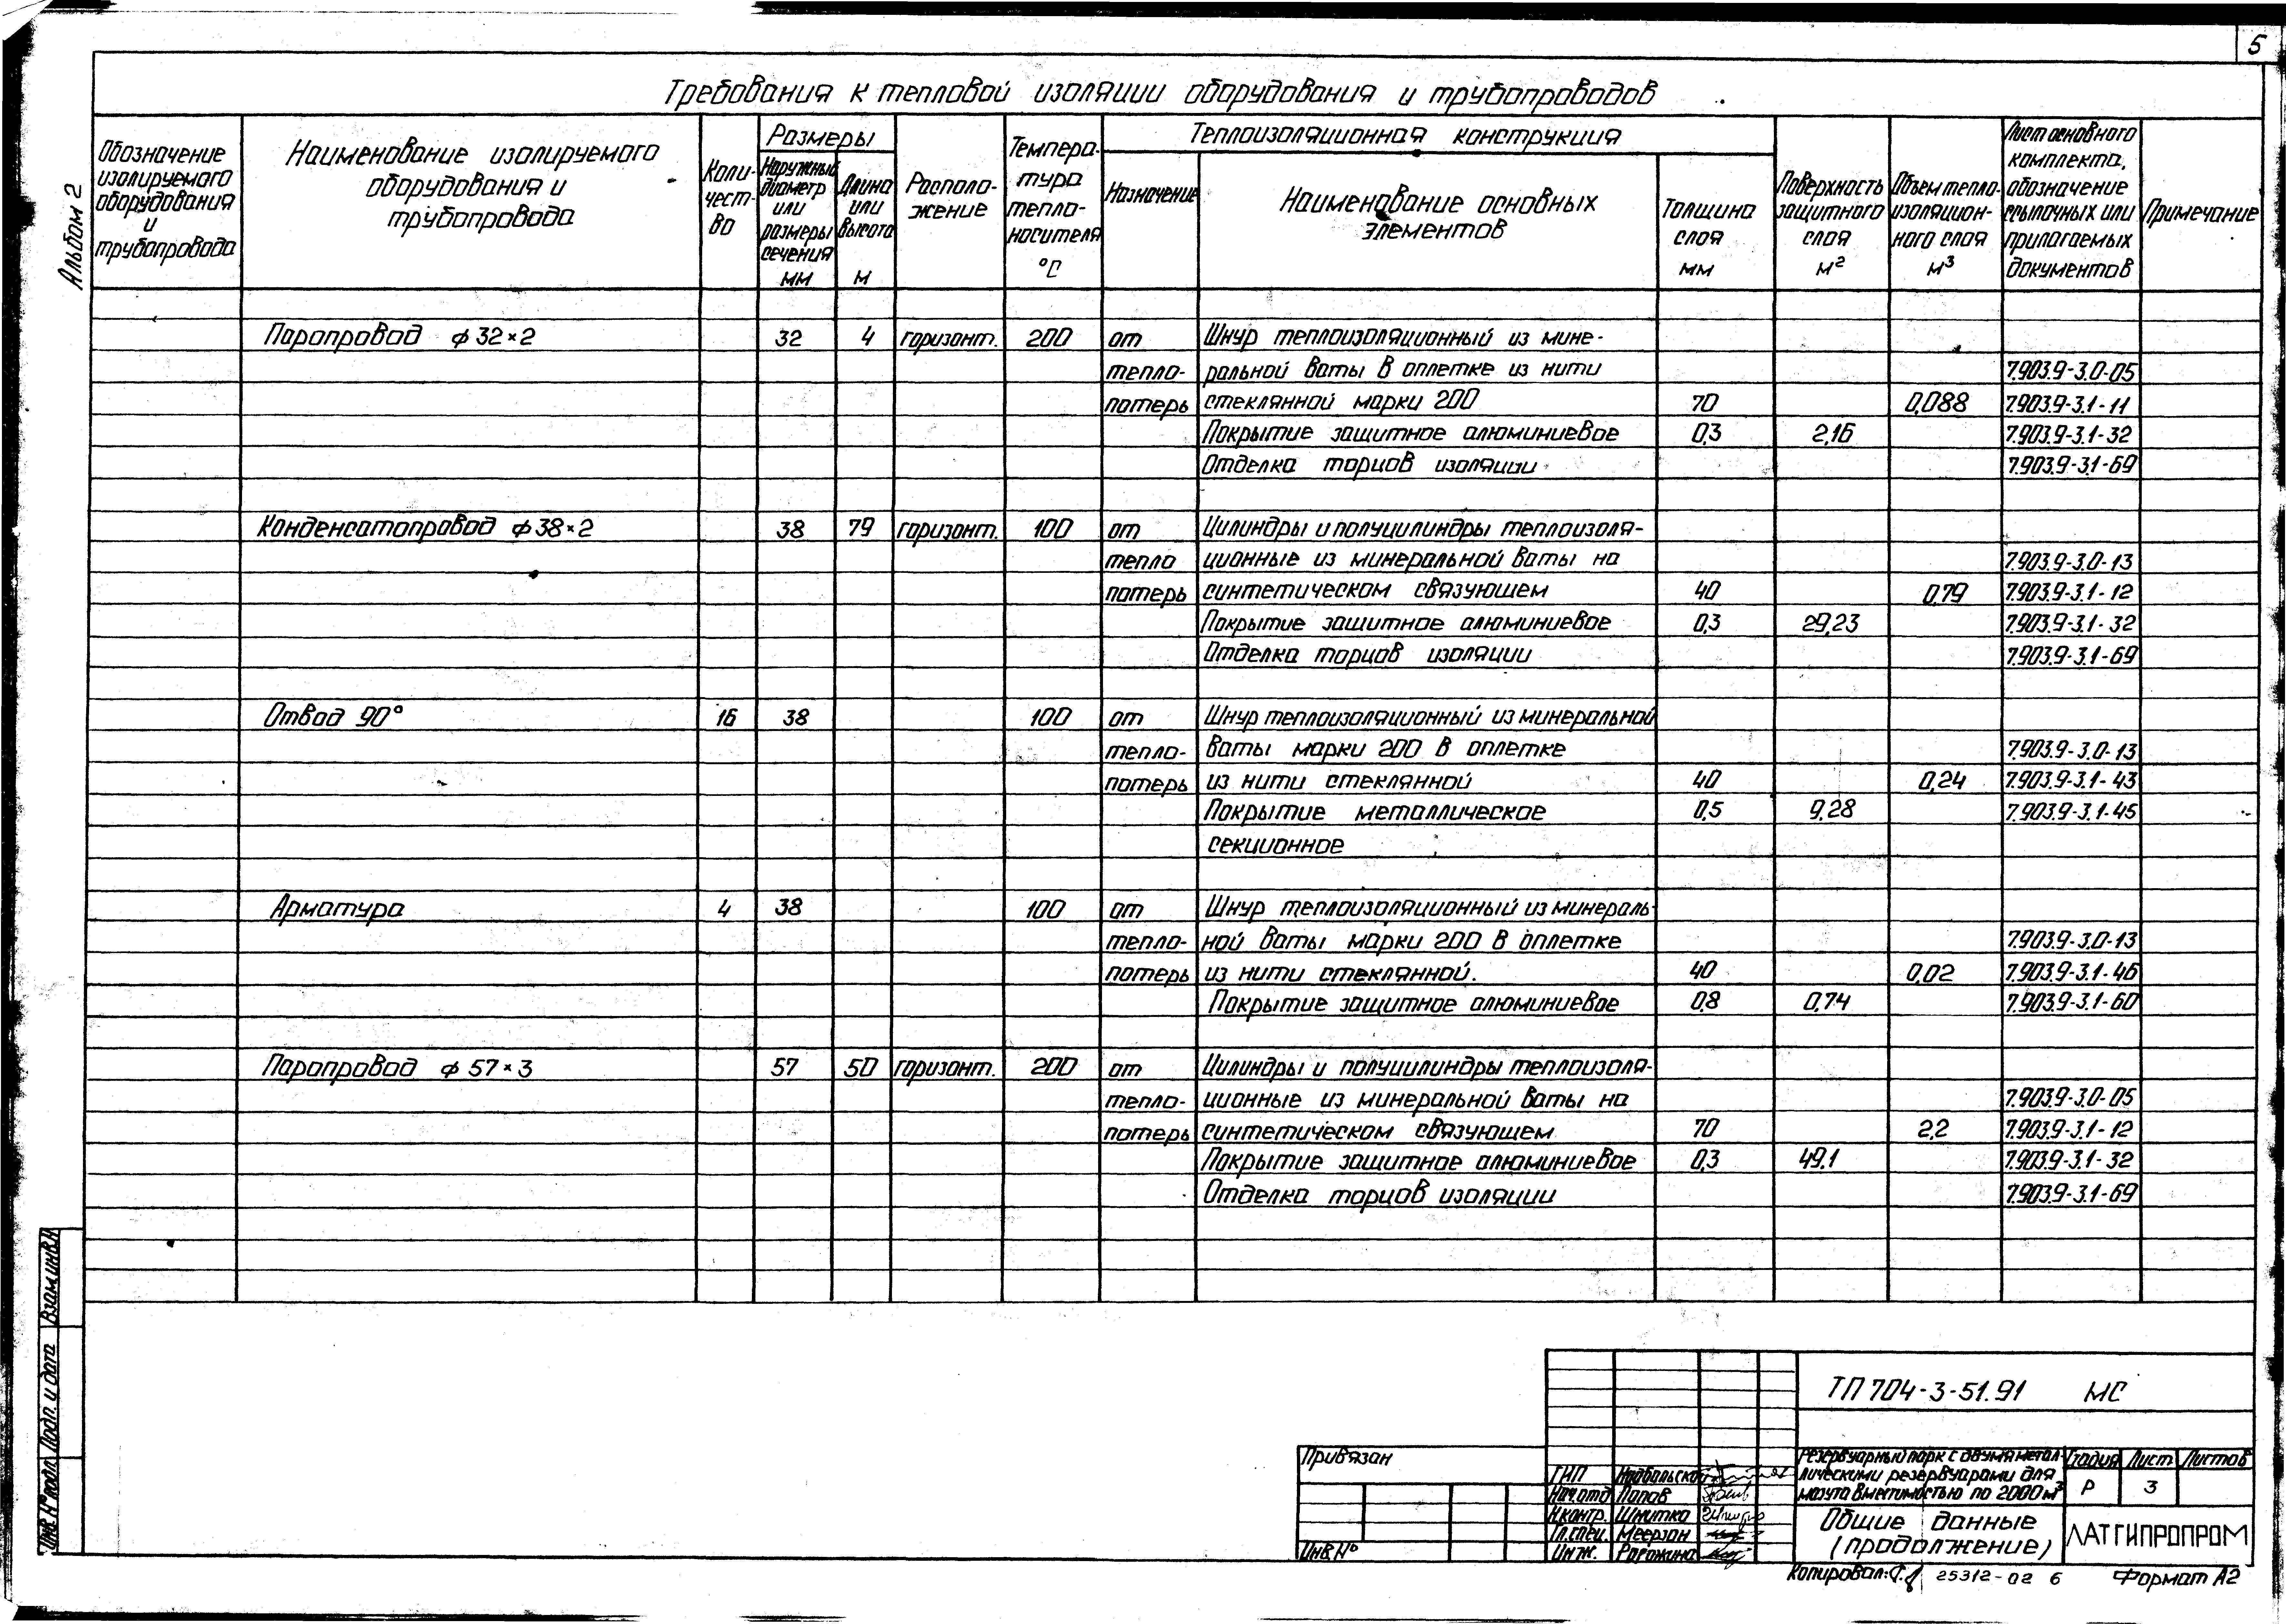 5
Альбом 2
Требования к тепловой изоляции оборудования и трубопроводов
Обозначение изолируемого оборудования и трубопровода
Наименование изолируемого оборудования и трубопровода
Количество
Размеры
Наружный диаметр или размеры сечения мм
Длина или высота м
Расположение
Температура теплоносителя °С
Теплоизоляционная конструкция
Назначение
Наименование основных элементов
Толщина слоя мм
Поверхность защитного слоя м²
Объем теплоизоляционного слоя м³
Лист основного комплекта, обозначение ссылочных или прилагаемых документов
Примечание
Паропровод ф 32×2 32 4 горизонт. 200 от Шнур теплоизоляционный из мине-
тепло- ральной ваты в оплетке из нити 7.903.9-3.0-05
потерь стеклянной марки 200 70 0,088 7.903.9-3.1-11
Покрытие защитное алюминиевое 0,3 2,16 7.903.9-3.1-32
Отделка торцов изоляции 7.903.9-3.1-69
Конденсатопровод ф 38×2 38 79 горизонт. 100 от Цилиндры и полуцилиндры теплоизоля-
тепло ционные из минеральной ваты на 7.903.9-3.0-13
потерь синтетическом связующем 40 0,79 7.903.9-3.1-12
Покрытие защитное алюминиевое 0,3 29,23 7.903.9-3.1-32
Отделка торцов изоляции 7.903.9-3.1-69
Отвод 90° 16 38 100 от Шнур теплоизоляционный из минеральной
тепло- ваты марки 200 в оплетке 7.903.9-3.0-13
потерь из нити стеклянной 40 0,24 7.903.9-3.1-43
Покрытие металлическое 0,5 9,28 7.903.9-3.1-45
секционное
Арматура 4 38 100 от Шнур теплоизоляционный из минераль-
тепло- ной ваты марки 200 в оплетке 7.903.9-3.0-13
потерь из нити стеклянной. 40 0,02 7.903.9-3.1-46
Покрытие защитное алюминиевое 0,8 0,74 7.903.9-3.1-60
Паропровод ф 57×3 57 50 горизонт. 200 от Цилиндры и полуцилиндры теплоизоля-
тепло- ционные из минеральной ваты на 7.903.9-3.0-05
потерь синтетическом связующем 70 2,2 7.903.9-3.1-12
Покрытие защитное алюминиевое 0,3 49,1 7.903.9-3.1-32
Отделка торцов изоляции 7.903.9-3.1-69
Взам.инв.N
Подп. и дата
Инв.N°подл.
Привязан
Инв.N°
ТП 704-3-51.91 МС
ГИП
Нач.отд Попов
Н.контр. Шнитко
Гл.спец. Меерзон
Инж. Ророжина
Резервуарный парк с двумя метал-
лическими резервуарами для
мазута вместимостью по 2000 м³
Стадия Лист Листов
Р 3
Общие данные
(продолжение)
ЛАТГИПРОПРОМ
Копировал: 25312-02 6 Формат А2